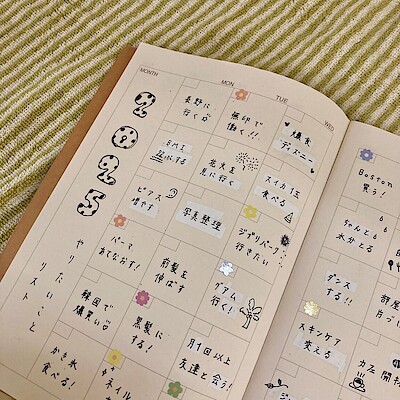 MONTH
MON
TUE
WED
2025
やりたいこと
リスト
長野に
行く
無印で
働く!!
爆食
ディズニー
Boston
買う!
花火を
見に行く
スイカを
食べる
ちゃんと
水分とる
ピアス
増やす
写真整理
ジブリパーク
行きたい
ダンス
する!!
パーマ
あてなおす!
前髪を
伸ばす
グアム
行く!
部屋
片づ
韓国で
爆買い
黒髪に
する!
スキンケア
変える
かき氷
食べる!
ネイル
月1回以上
友達と会う!
カフェ
開拓